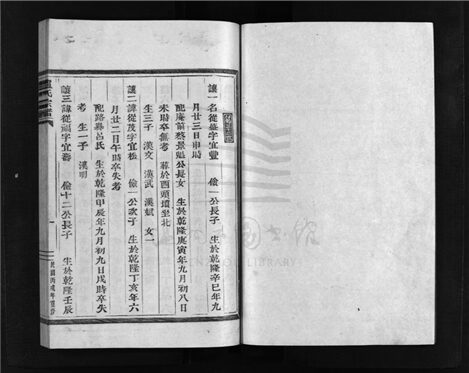 讓一 名從登字宜豐 儉一公長子 生於乾隆辛巳年九
月廿三日申時
配庵前蔡景魁公長女 生於乾隆庚寅年九月初八日
未時卒無考 葬於西頭壇堂北
生三子 漢文 漢武 漢斌 女一
讓二 諱從茂字宜松 儉一公次子 生於乾隆丁亥年六
月廿二日午時卒失考
配路縣呂氏 生於乾隆甲辰年九月初九日戌時卒失
考 生一子 漢明
讓三 諱從福字宜壽 儉十二公長子 生於乾隆壬辰
民國丙戌年重修
氏宗譜
LIBRARY